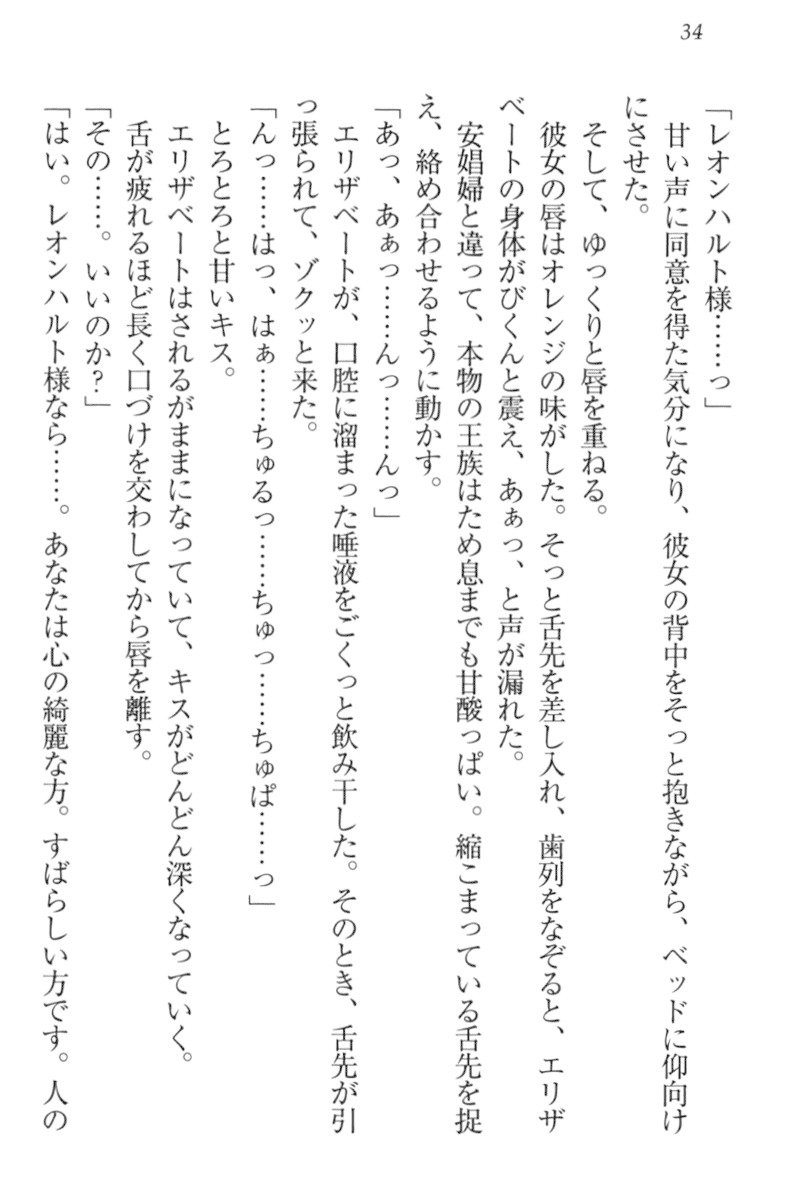 34
「レオンハルト様……っ」
　甘い声に同意を得た気分になり、彼女の背中をそっと抱きながら、ベッドに仰向け
にさせた。
　そして、ゆっくりと唇を重ねる。
　彼女の唇はオレンジの味がした。そっと舌先を差し入れ、歯列をなぞると、エリザ
ベートの身体がびくんと震え、あぁっ、と声が漏れた。
　安娼婦と違って、本物の王族はため息までも甘酸っぱい。縮こまっている舌先を捉
え、絡め合わせるように動かす。
「あっ、あぁっ……んっ……んっ」
　エリザベートが、口腔に溜まった唾液をごくっと飲み干した。そのとき、舌先が引
っ張られて、ゾクッと来た。
「んっ……はっ、はぁ……ちゅるっ……ちゅっ……ちゅぱ……っ」
　とろとろと甘いキス。
　エリザベートはされるがままになっていて、キスがどんどん深くなっていく。
　舌が疲れるほど長く口づけを交わしてから唇を離す。
「その……。いいのか？」
「はい。レオンハルト様なら……。あなたは心の綺麗な方。すばらしい方です。人の